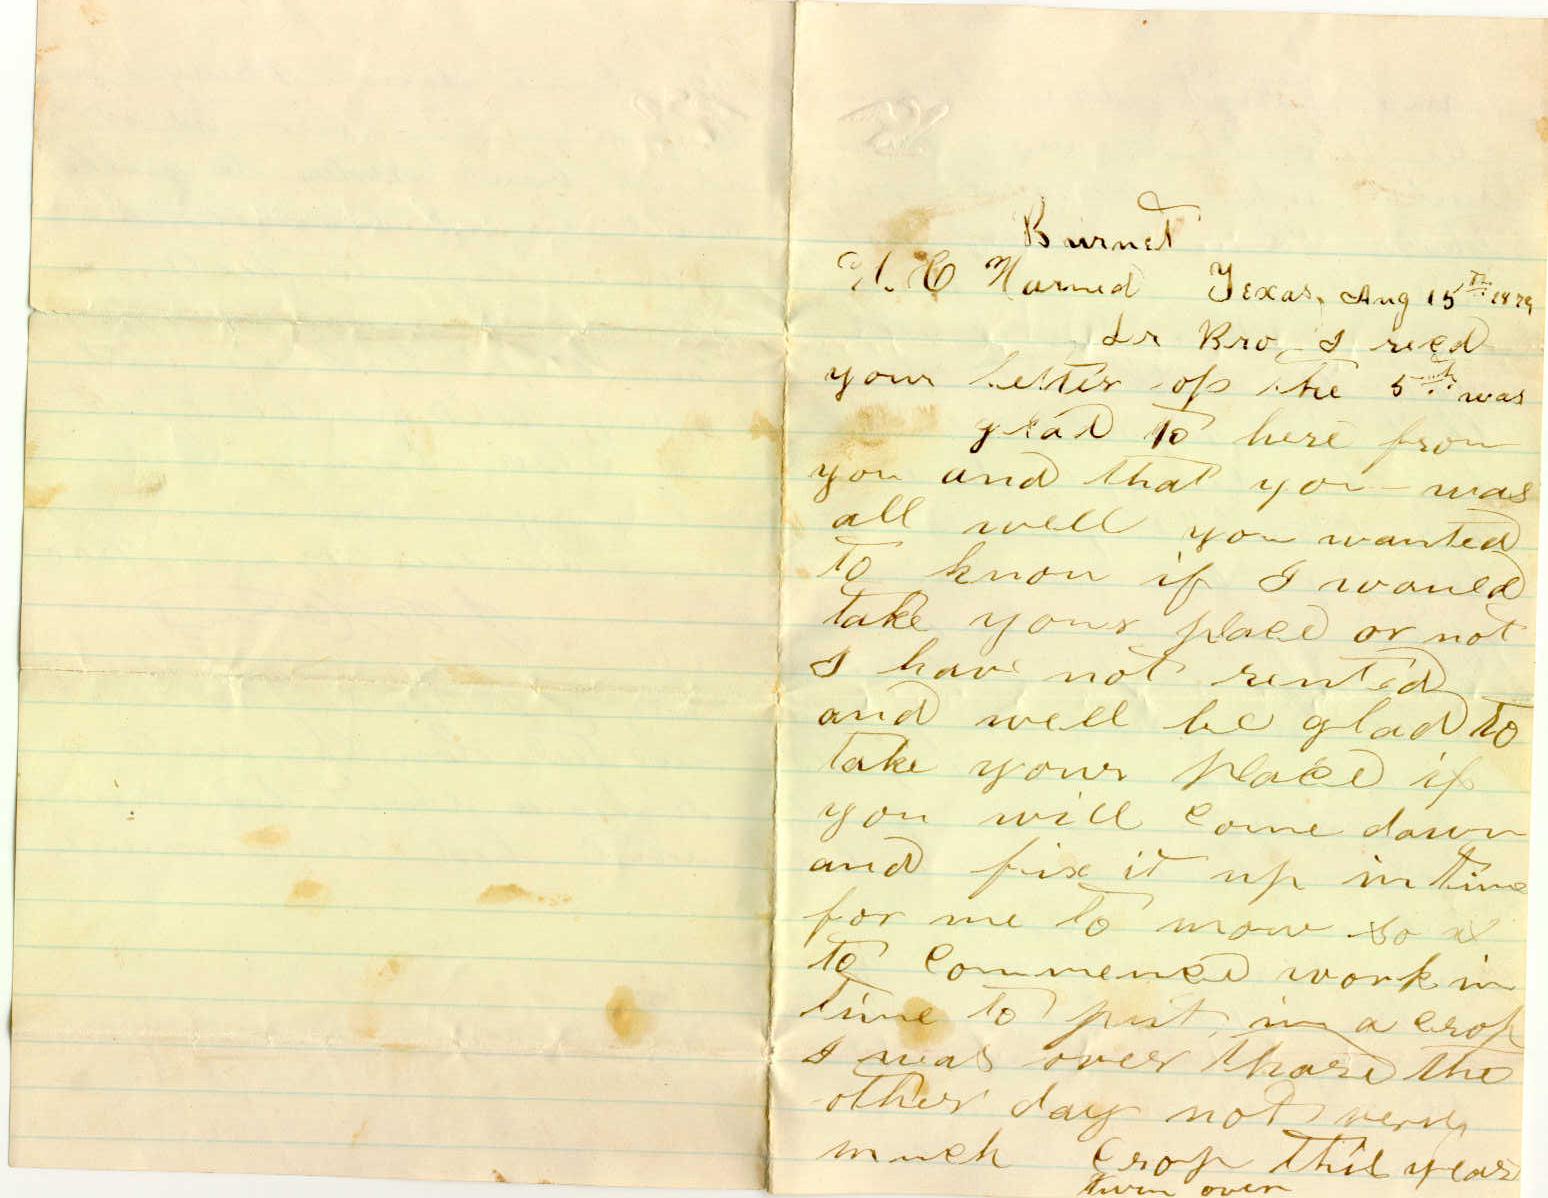 Burnet
H. C Harned Texas, Aug 15th 1879
Dr Bro, I recd
your letter of the 5th was
glad to here from
you and that you was
all well you wanted
to know if I would
take your place or not
I have not rented
and well be glad to
take your place if
you will come down
and fix it up in time
for me to move so as
to commence work in
time to put in a crop
I was over thare the
other day not very
much crop this year
turn over